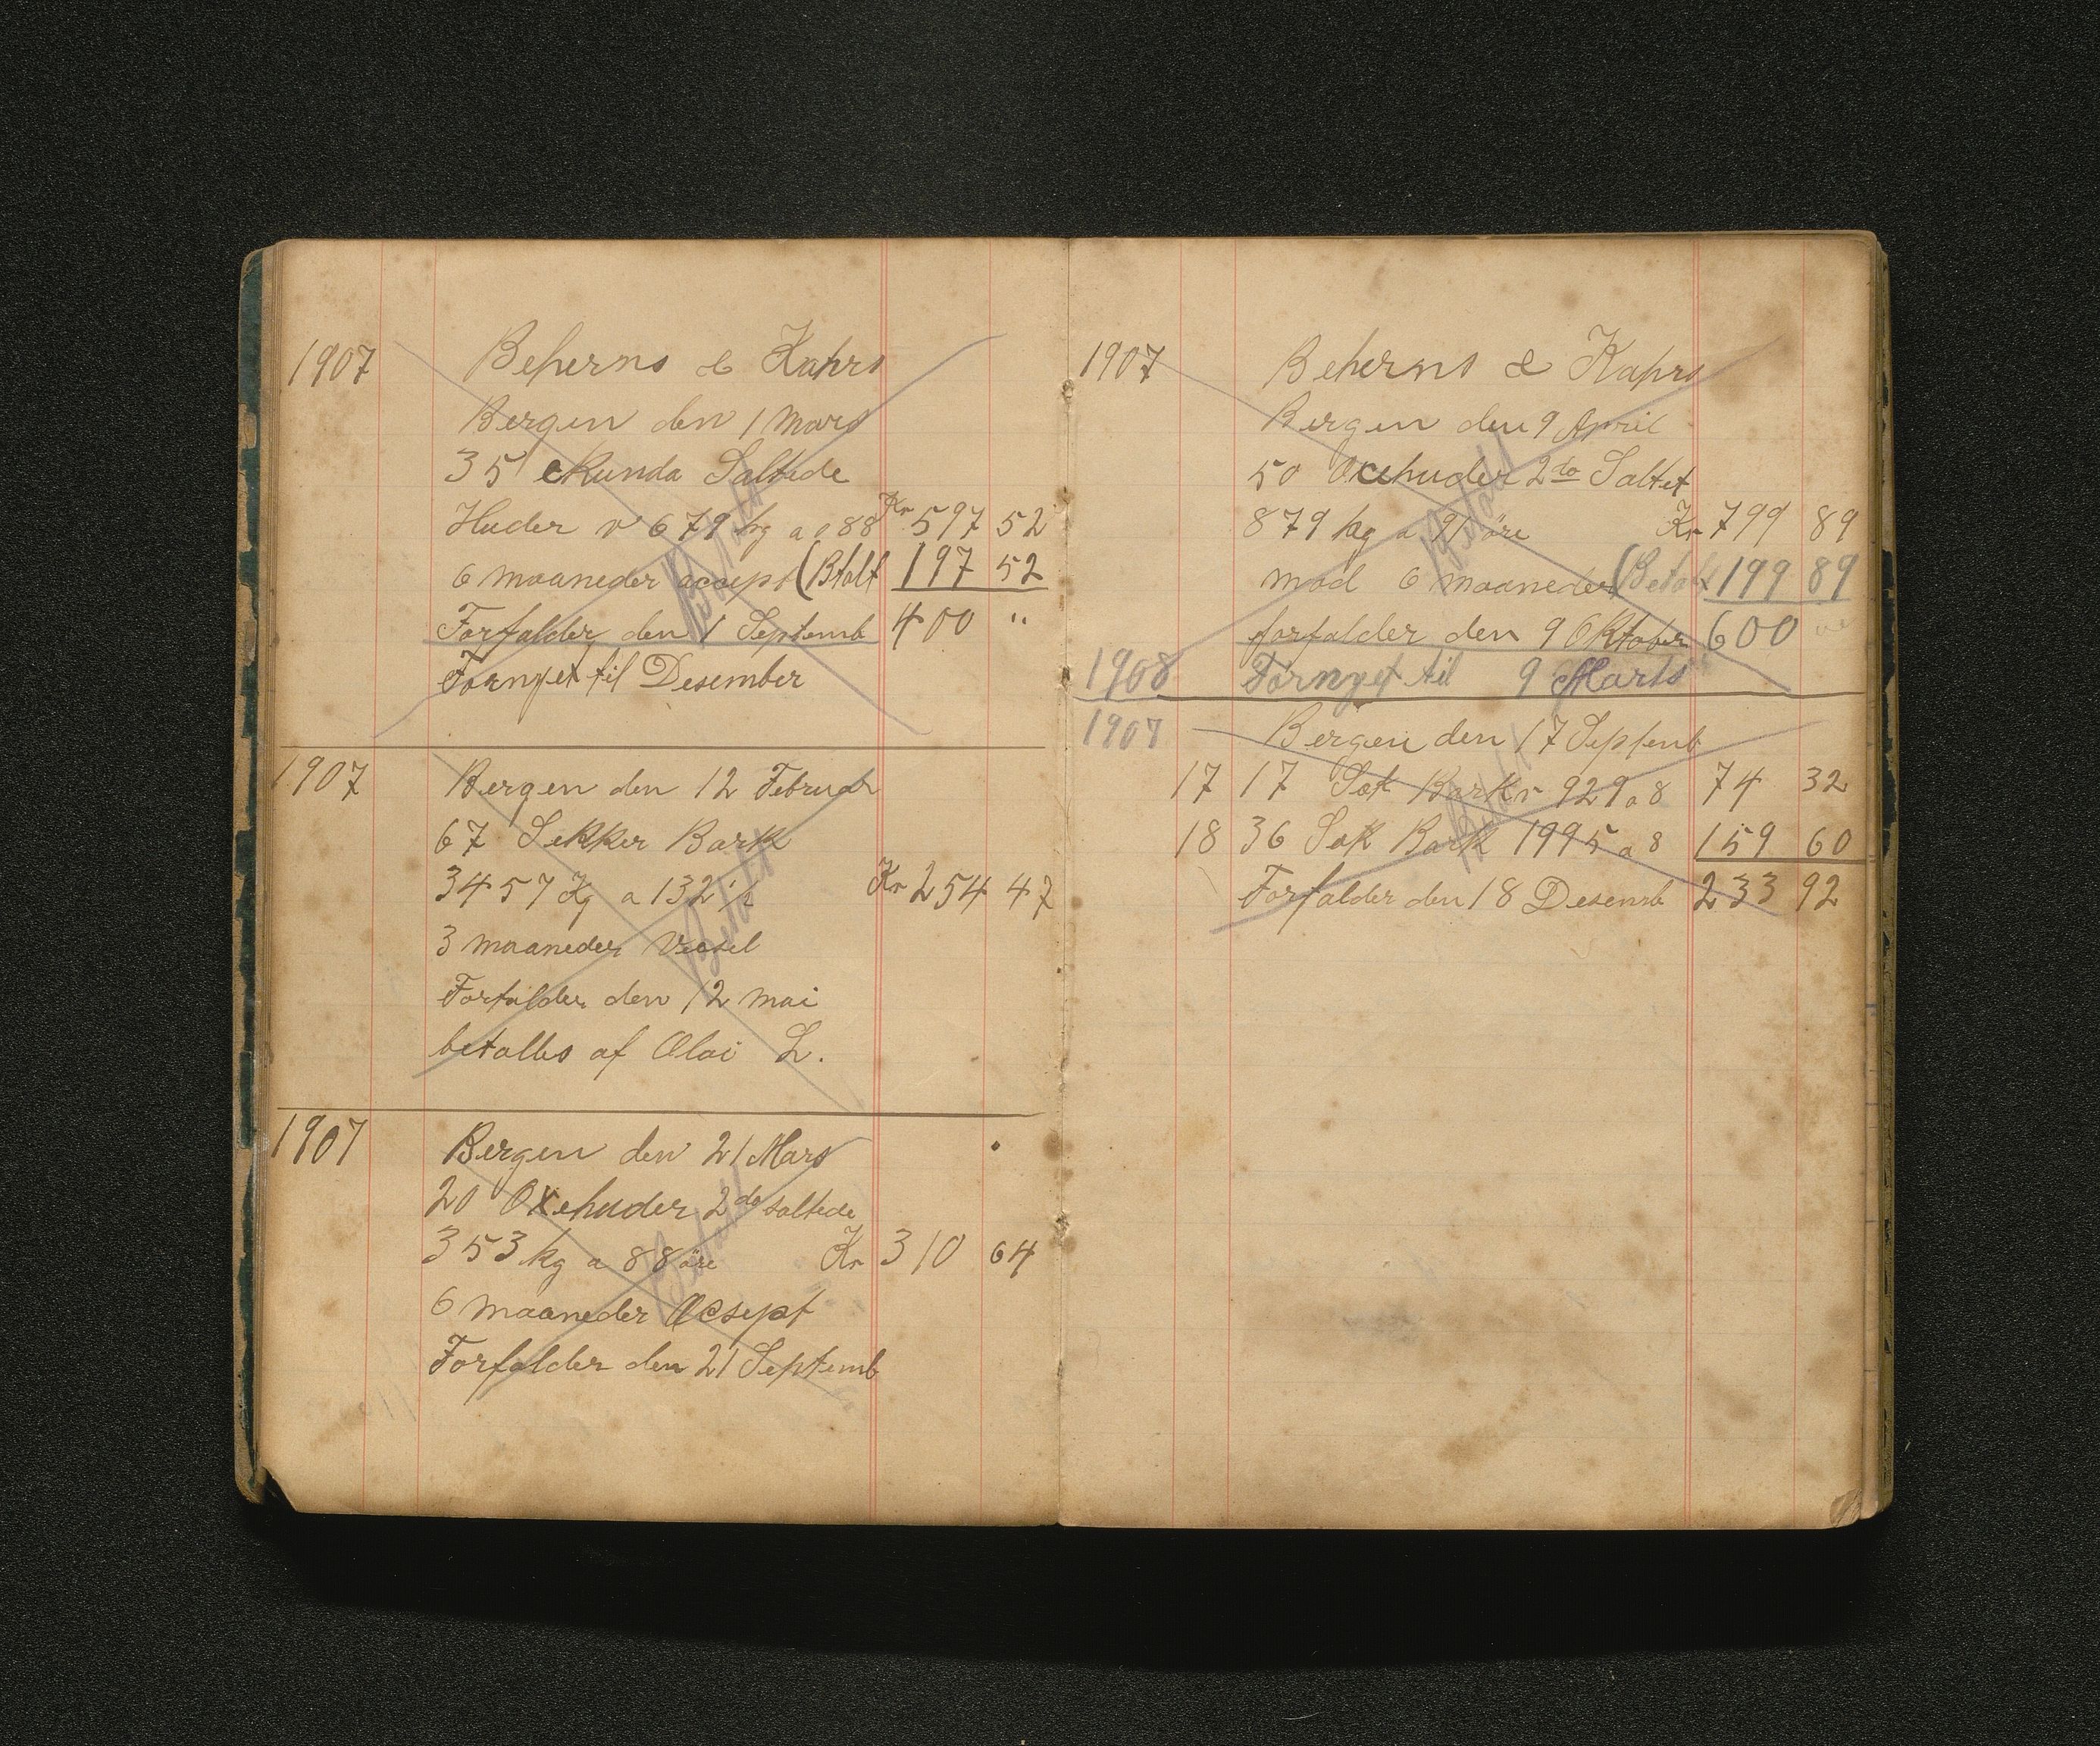 1907 Beherns & Kahrs
Bergen den 1 Mars
35 ekunda Saltede
Huder v 679 kg a 0 88 Kr 597 52
6 maaneder accept (Btalt 197 52
Forfalder den 1 Septemb 400 "
Fornyet til Desember
Betalt
1907 Bergen den 12 Februar
67 Sekker Bark
3457 Kg a 132 ½ Kr 254 47
3 maaneder Vecsel
Forfalder den 12 mai
betalles af Olai L.
Betalt
1907 Bergen den 21 Mars
20 Oxehuder 2do saltede
353 kg a 88 øre Kr 310 64
6 maaneder Acsept
Forfalder den 21 Septemb
Betalt
1907 Beherns & Kahrs
Bergen den 9 April
50 Oxehuder 2do Saltet
879 kg a 91 øre Kr 799 89
mod 6 maaneder (Betalt 199 89
forfalder den 9 Oktober 600
1908 Fornyet til 9 Marts
Betalt
1907 Bergen den 17 Septemb
17 17 Sæk Bark v 929 a 8 74 32
18 36 Sæk Bark 1995 a 8 159 60
Forfalder den 18 Desemb 233 92
Betalt